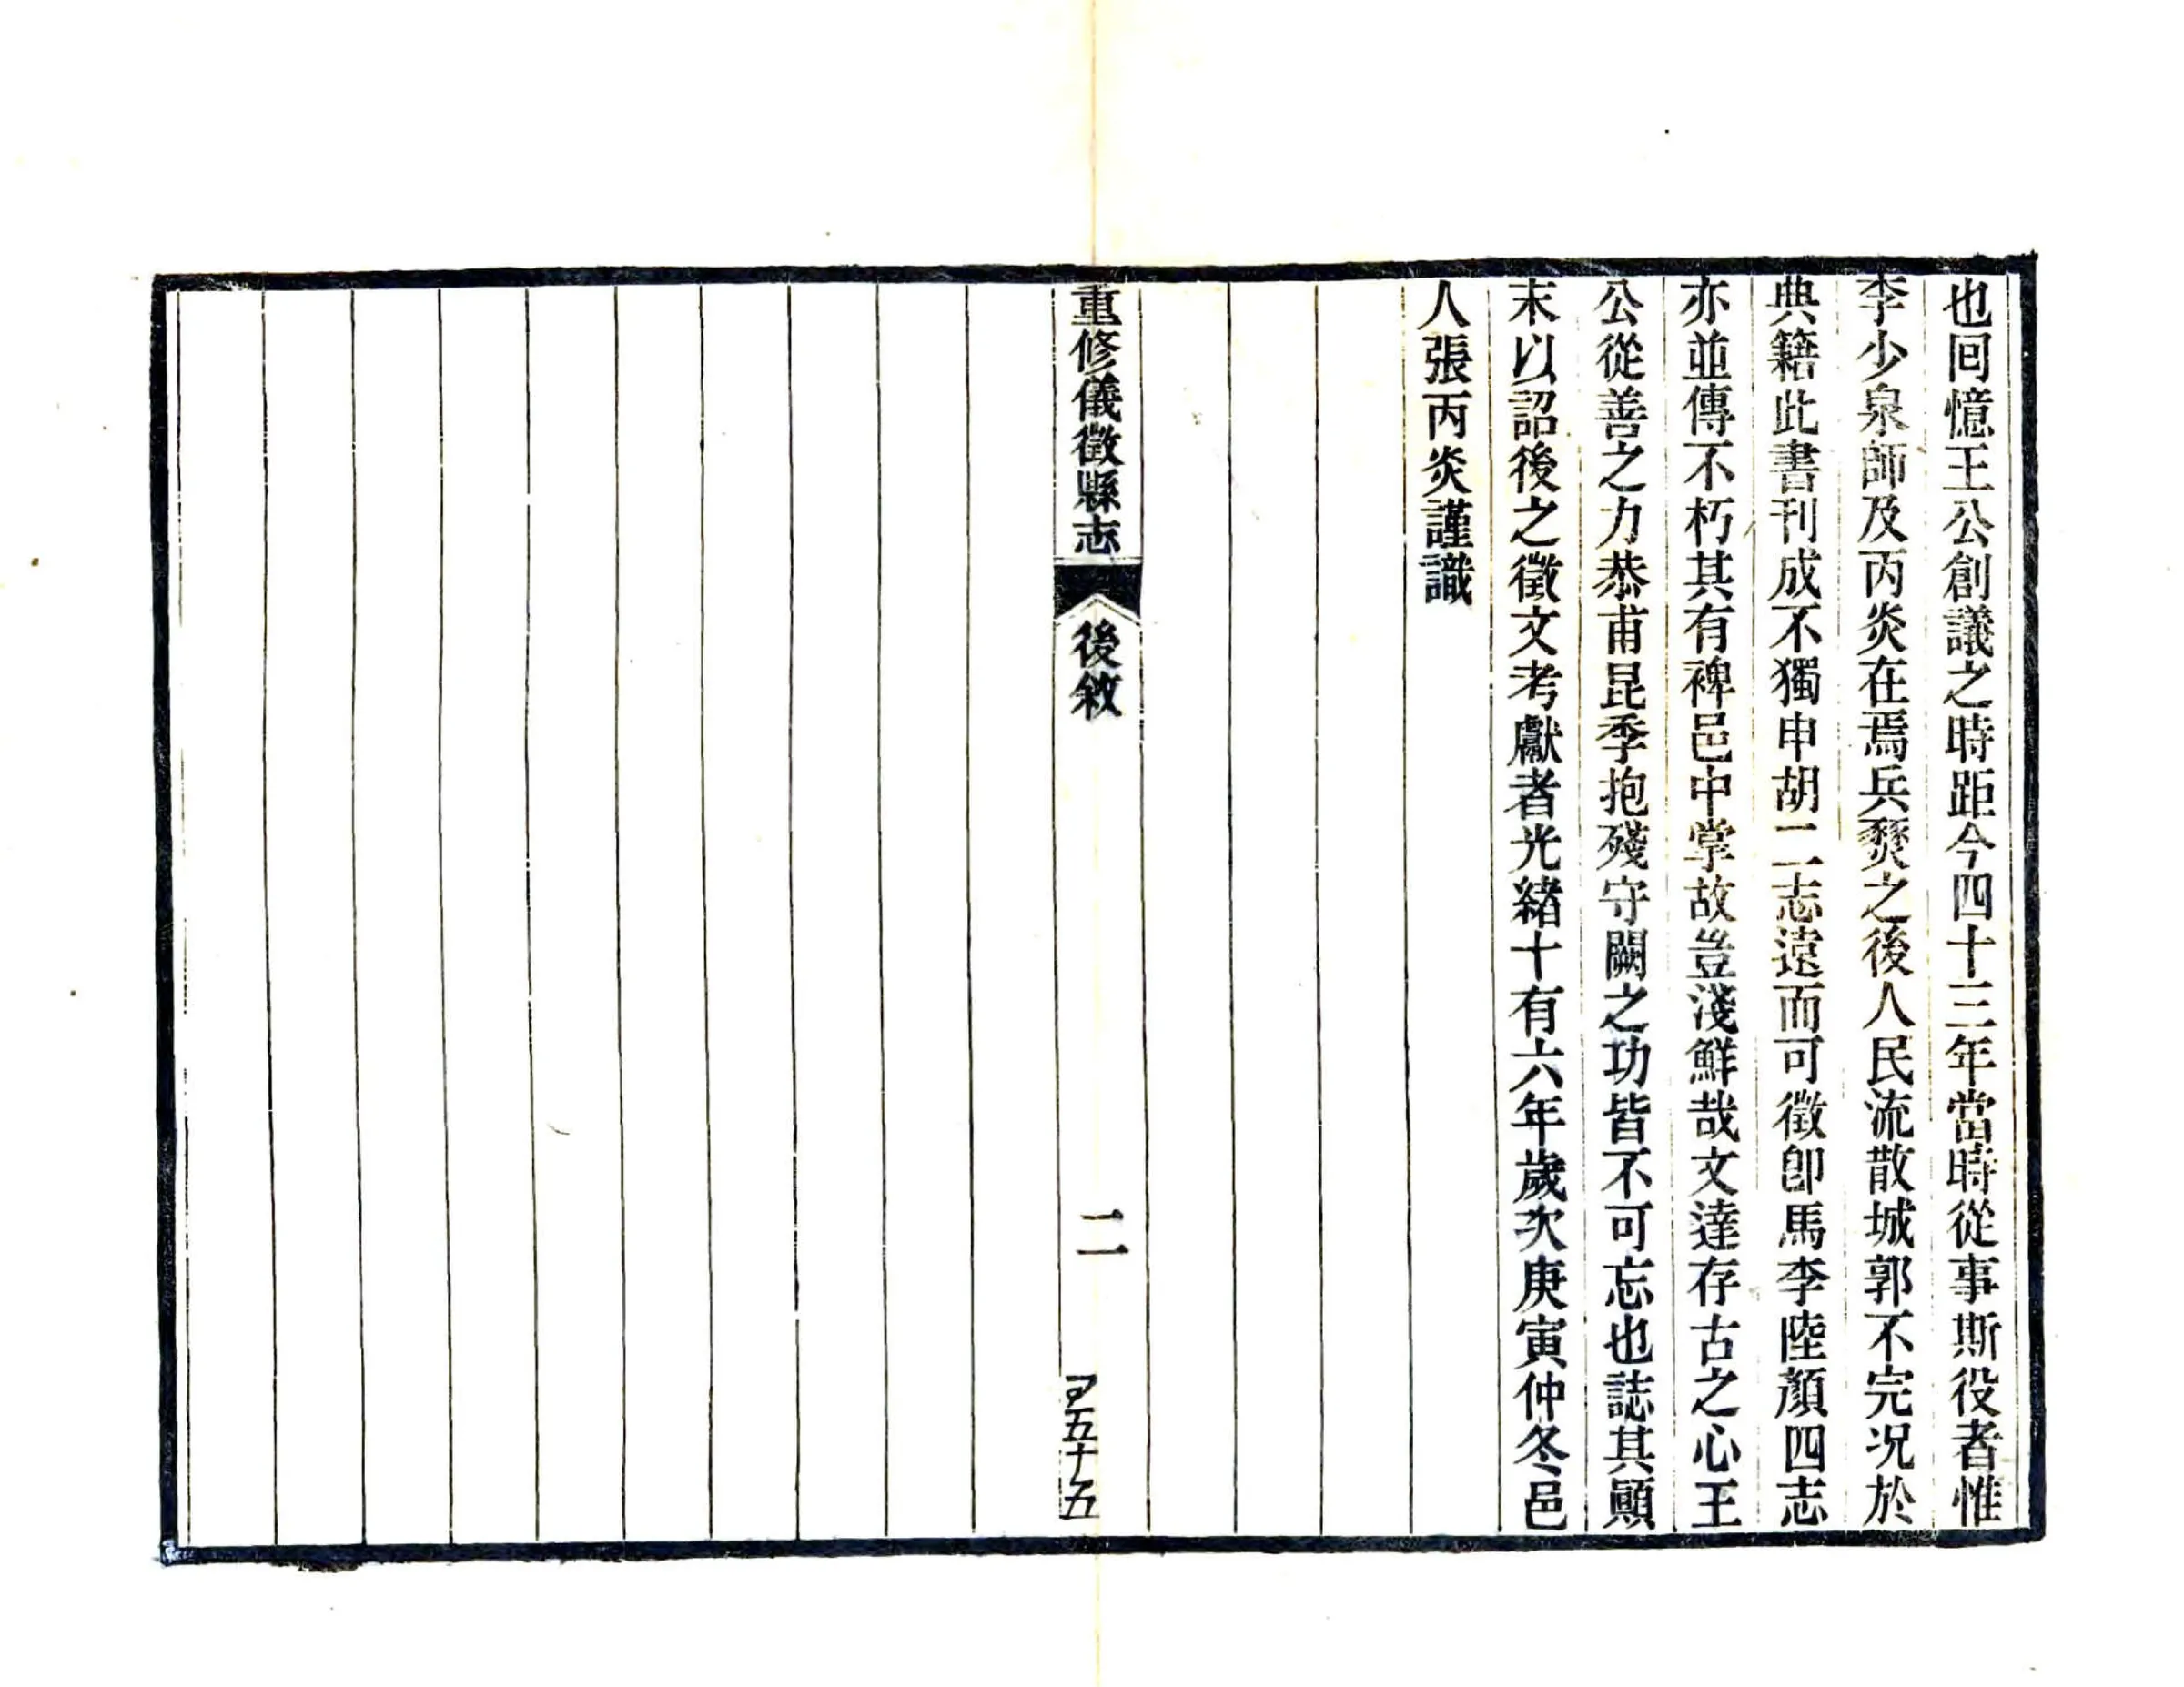 也回憶王公創議之時距今四十三年當時從事斯役者惟
李少泉師及丙炎在焉兵燹之後人民流散城郭不完况於
典籍此書刊成不獨申胡二志遠而可徵卽馬李陸顏四志
亦並傳不朽其有裨邑中掌故豈淺鮮哉文達存古之心王
公從善之力恭甫昆季抱殘守闕之功皆不可忘也誌其顚
末以詔後之徵文考獻者光緒十有六年歲次庚寅仲冬邑
人張丙炎謹識
重修儀徵縣志
後敘
二
五十五